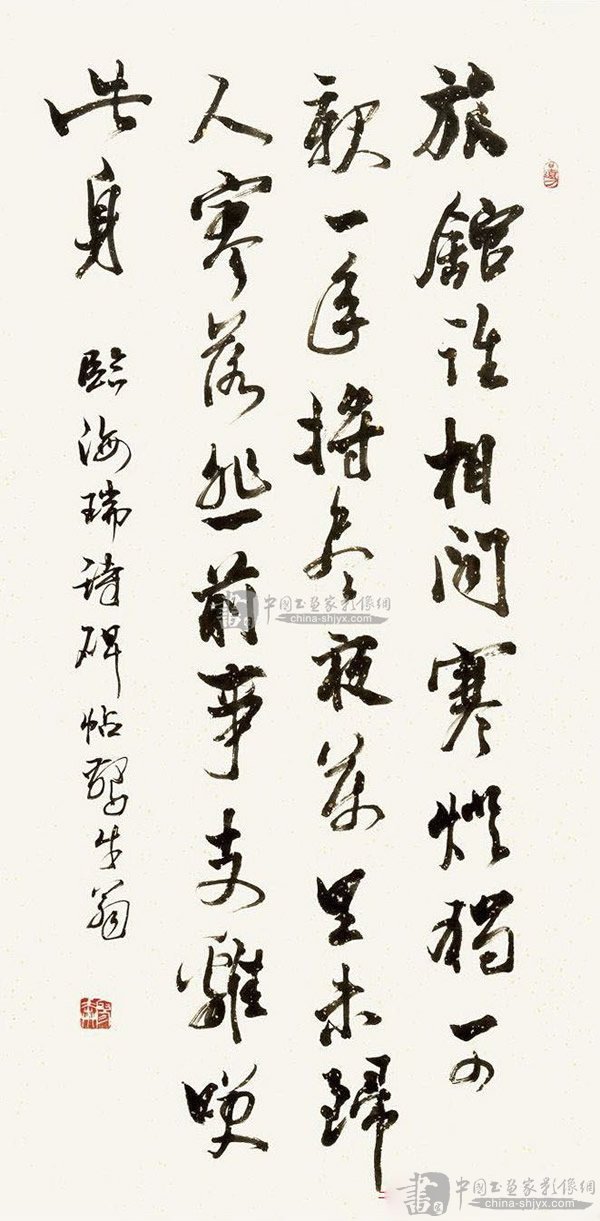 旅館誰相問寒燈獨可
親一年將盡夜萬里未歸
人寥落悲前事支離唉
此身
臨海瑞詩碑帖 生翁
中国书画家影像網
china-shjyx.com
中国书画家影像網
china-shjyx.com